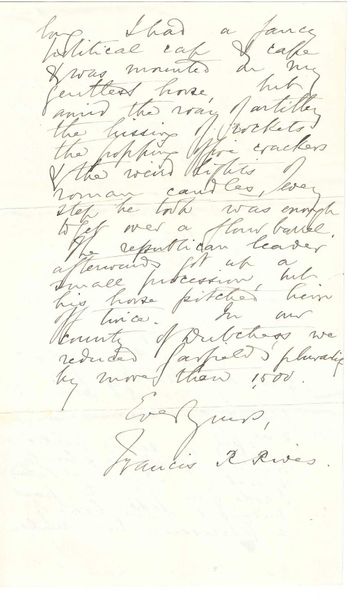 long. I had a fancy
political cap & cape
& was mounted on my
gentlest horse, but
amid the roar of artillery
the hissing of rockets
the popping of fire crackers
& the weird lights of
roman candles, every
step he took was enough
to get over a flour barrel.
The republican leader
afterwards got up a
small procession, but
his horse pitched him
off twice. In our
county of Dutchess we
reduced Garfield's plurality
by more than 1,500.
Ever Yours,
Francis R Rives.